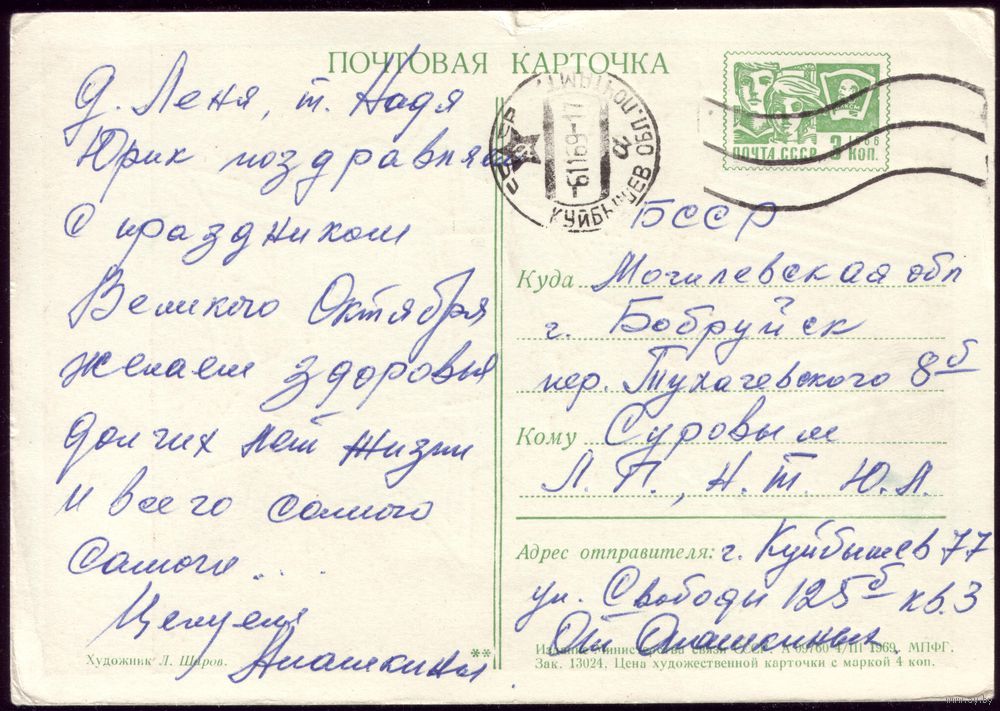 ПОЧТОВАЯ КАРТОЧКА
Д. Леня, т. Надя
Юрик поздравляем
С праздником
Великого Октября
желаем здоровья
долгих лет жизни
и всего самого
самого...
Целуем
Алашкины
Художник Л. Шаров.
**
СССР
КУЙБЫШЕВ ОБЛ. ПОЧТАМТ
-61169-17
а
ПОЧТА СССР 3 КОП.
1966
БССР
Куда Могилевская обл
г. Бобруйск
пер. Тухачевского 8б
Кому Суровым
Л. П., Н. Т. Ю. Л.
Адрес отправителя: г. Куйбышев 77
ул. Свободы 125б кв. 3
От Алашкиных
Издание Министерства связи СССР. А 09760 4/III 1969. МПФГ.
Зак. 13024. Цена художественной карточки с маркой 4 коп.